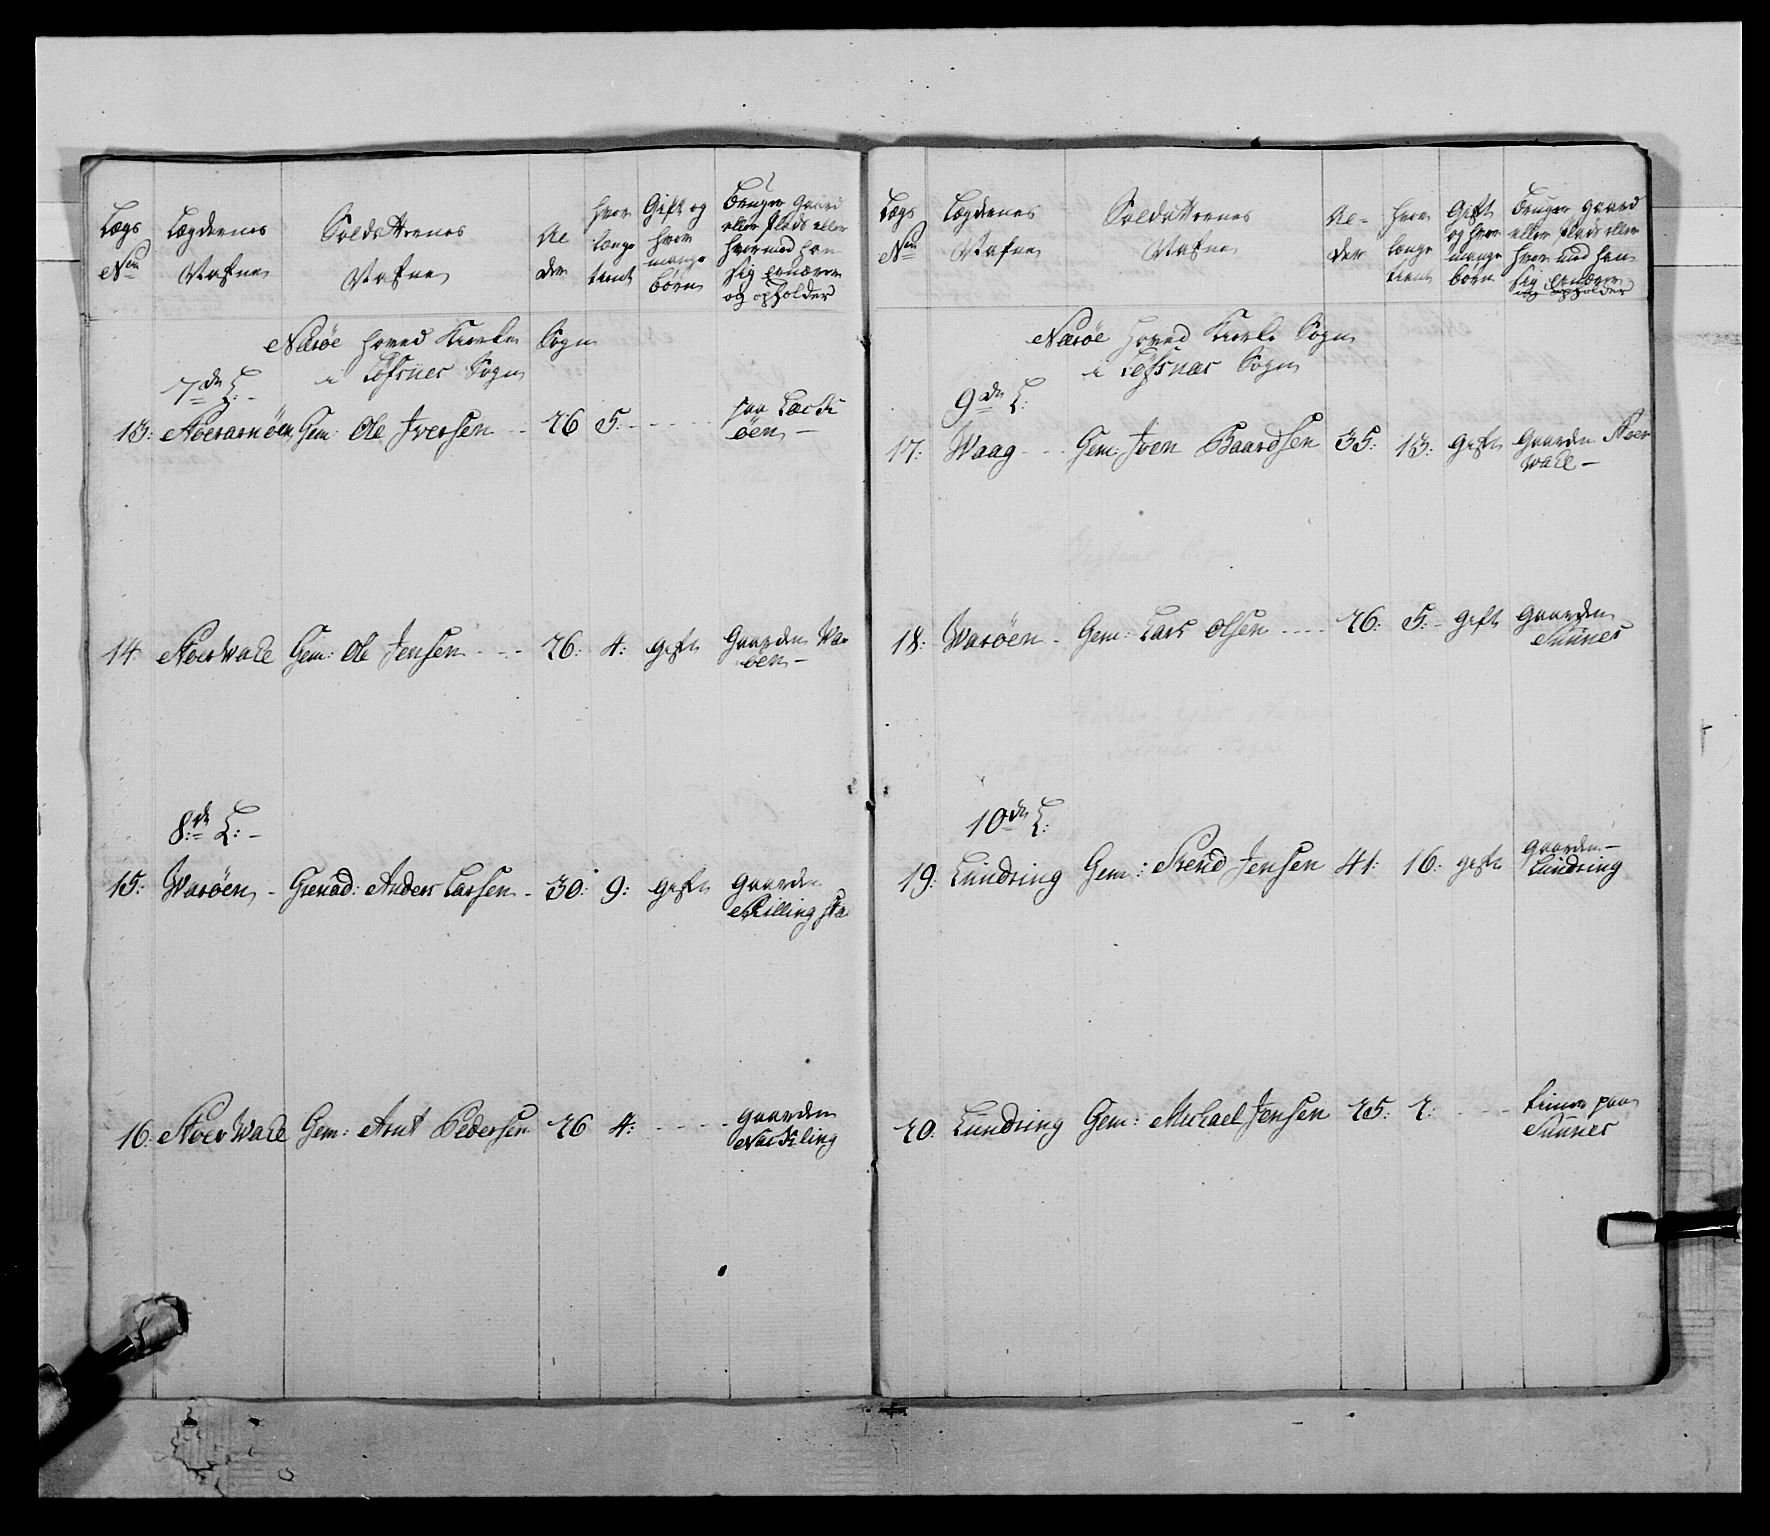 Lægs No
Lægdernes Nafne
Soldatternes Nafne
Al der
hvor længe tient
Gift og hvor mange børn
Bruger Gaard eller Plads eller hvormed han sig ernærer og opholder
Nærøe Hoved Kirke Sogn
i Fosnes Sogn
7de L: -
13: Gem: Ole Iversen - 26 5: - - - - paa
øen -
14 AverWale Gem: Ole Jensen - - - 26: 4: gift Gaarden Wa
øen -
8:de L: -
15: Warøen - Grenad: Anders Larsen - 30: 9: gift Gaarden
16: AverWale Gem: Arnt Pedersen 26 4: - - - - - Gaarden
Lægs No
Lægdernes Nafne
Soldatternes Nafne
Al- der
hvor længe tient
Gift og hvor mange børn
Bruger Gaard eller Plads eller hvor med han sig ernærer og opholder
Nærøe Hoved Kirke Sogn
i Fosnæs Sogn
9de L:
17: Waag - - - Gem: Joen Baardsen 35: 13: gift Gaarden Aver
wale -
18: Warøen - Gem: Lars Olsen - - - - 26: 5: - gift Gaarden
Sünnes
10de L:
19: Lündring Gem: Svend Jensen 41: 16: gift Gaarden -
Lündring
20: Lündring Gem: Michael Jensen 25: 2: - - - - tiener paa
Sünnes